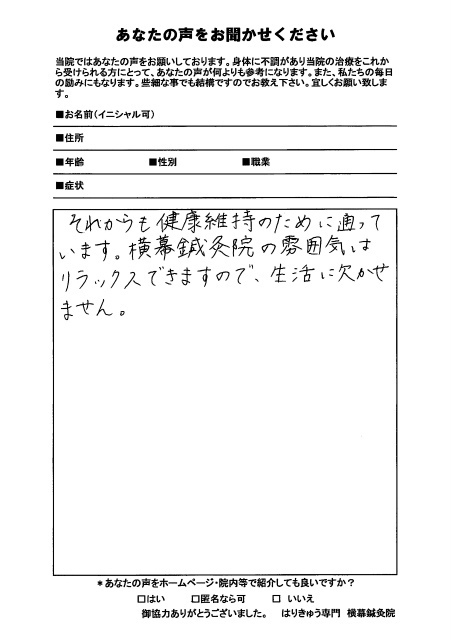 あなたの声をお聞かせください
当院ではあなたの声をお願いしております。身体に不調があり当院の治療をこれか
ら受けられる方にとって、あなたの声が何よりも参考になります。また、私たちの毎日
の励みにもなります。些細な事でも結構ですのでお教え下さい。宜しくお願い致しま
す。
■お名前(イニシャル可)
■住所
■年齢 ■性別 ■職業
■症状
それからも健康維持のために通って
います。横幕鍼灸院の雰囲気は
リラックスできますので、生活に欠かせ
ません。
*あなたの声をホームページ・院内等で紹介しても良いですか?
□はい □匿名なら可 □ いいえ
御協力ありがとうございました。 はりきゅう専門 横幕鍼灸院